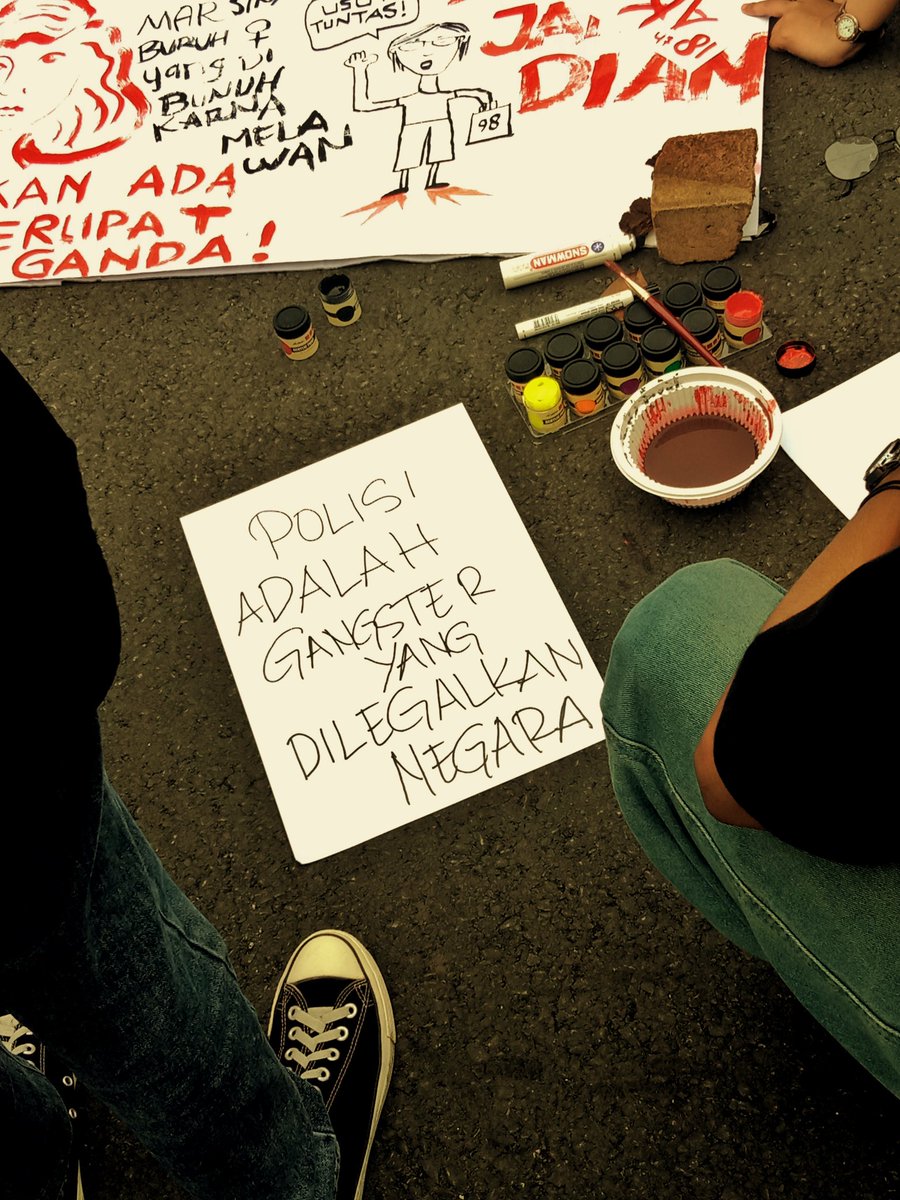 MAR SIN
BURUH ♀
yang DI
BUNUH
KARNA
MELA
WAN
USU
TUNTAS!
98
JA,
DIAN
KAN ADA
ERLIPAT
GANDA!
SNOWMAN
POLISI
ADALAH
GANGSTER
YANG
DILEGALKAN
NEGARA